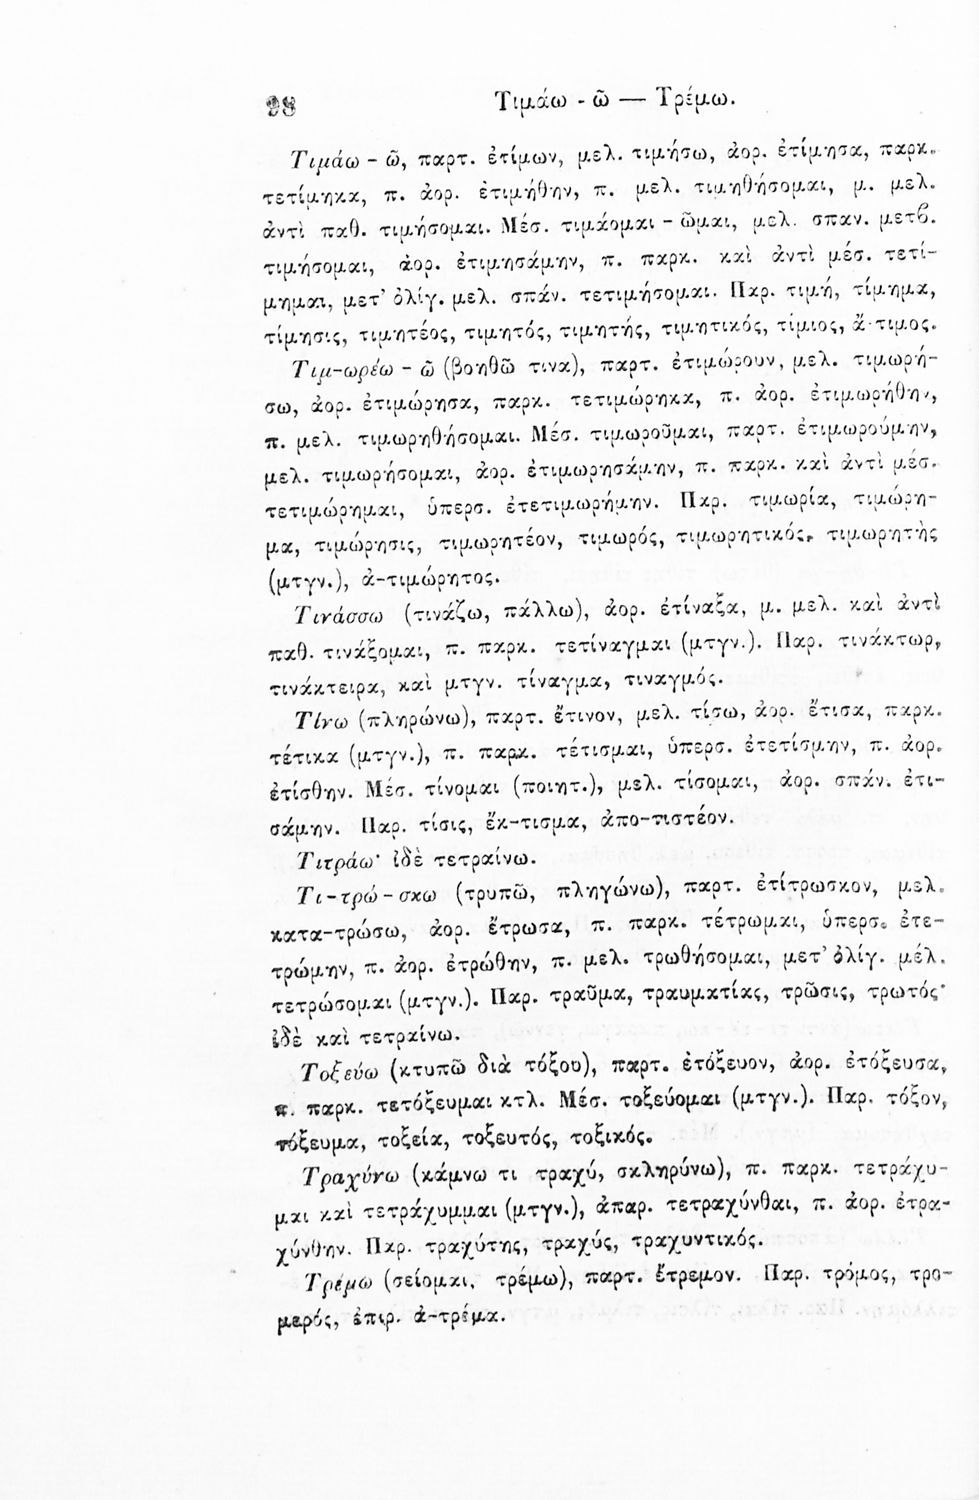 98 Τιμάω - ῶ — Τρέμω.
Τιμάω - ῶ, παρτ. ἐτίμων, μελ. τιμήσω, ἀορ. ἐτίμησα, παρκ.
τετίμηκα, π. ἀορ. ἐτιμήθην, π. μελ. τιμηθήσομαι, μ. μελ.
ἀντὶ παθ. τιμήσομαι. Μέσ. τιμάομαι - ῶμαι, μελ. σπαν. μετϐ.
τιμήσομαι, ἀορ. ἐτιμησάμην, π. παρκ. καὶ ἀντὶ μέσ. τετί-
μημαι, μετ’ ὀλίγ. μελ. σπάν. τετιμήσομαι. Παρ. τιμή, τίμημα,
τίμησις, τιμητέος, τιμητός, τιμητής, τιμητικός, τίμιος, ἄ-τιμος.
Τιμ-ωρέω - ῶ (βοηθῶ τινα), παρτ. ἐτιμώρουν, μελ. τιμωρή-
σω, ἀορ. ἐτιμώρησα, παρκ. τετιμώρηκα, π. ἀορ. ἐτιμωρήθην,
π. μελ. τιμωρηθήσομαι. Μέσ. τιμωροῦμαι, παρτ. ἐτιμωρούμην,
μελ. τιμωρήσομαι, ἀορ. ἐτιμωρησάμην, π. παρκ. καὶ ἀντὶ μέσ.
τετιμώρημαι, ὑπερσ. ἐτετιμωρήμην. Παρ. τιμωρία, τιμώρη-
μα, τιμώρησις, τιμωρητέον, τιμωρός, τιμωρητικός, τιμωρητὴς
(μτγν.), ἀ-τιμώρητος.
Τινάσσω (τινάζω, πάλλω), ἀορ. ἐτίναξα, μ. μελ. καὶ ἀντὶ
παθ. τινάξομαι, π. παρκ. τετίναγμαι (μτγν.). Παρ. τινάκτωρ,
τινάκτειρα, καὶ μτγν. τίναγμα, τιναγμός.
Τίνω (πληρώνω), παρτ. ἔτινον, μελ. τίσω, ἀορ. ἔτισα, παρκ.
τέτικα (μτγν.), π. παρκ. τέτισμαι, ὑπερσ. ἐτετίσμην, π. ἀορ.
ἐτίσθην. Μέσ. τίνομαι (ποιητ.), μελ. τίσομαι, ἀορ. σπάν. ἐτι-
σάμην. Παρ. τίσις, ἔκ-τισμα, ἀπο-τιστέον.
Τιτράω· ἰδὲ τετραίνω.
Τι-τρώ-σκω (τρυπῶ, πληγώνω), παρτ. ἐτίτρωσκον, μελ.
κατα-τρώσω, ἀορ. ἔτρωσα, π. παρκ. τέτρωμαι, ὑπερσ. ἐτε-
τρώμην, π. ἀορ. ἐτρώθην, π. μελ. τρωθήσομαι, μετ’ ὀλίγ. μέλ.
τετρώσομαι (μτγν.). Παρ. τραῦμα, τραυματίας, τρῶσις, τρωτός·
ἰδὲ καὶ τετραίνω.
Τοξεύω (κτυπῶ διὰ τόξου), παρτ. ἐτόξευον, ἀορ. ἐτόξευσα,
π. παρκ. τετόξευμαι κτλ. Μέσ. τοξεύομαι (μτγν.). Παρ. τόξον,
τόξευμα, τοξεία, τοξευτός, τοξικός.
Τραχύνω (κάμνω τι τραχύ, σκληρύνω), π. παρκ. τετράχυ-
μαι καὶ τετράχυμμαι (μτγν.), ἀπαρ. τετραχύνθαι, π. ἀορ. ἐτρα-
χύνθην. Παρ. τραχύτης, τραχύς, τραχυντικός.
Τρέμω (σείομαι, τρέμω), παρτ. ἔτρεμον. Παρ. τρόμος, τρο-
μερός, ἐπιρ. ἀ-τρέμα.